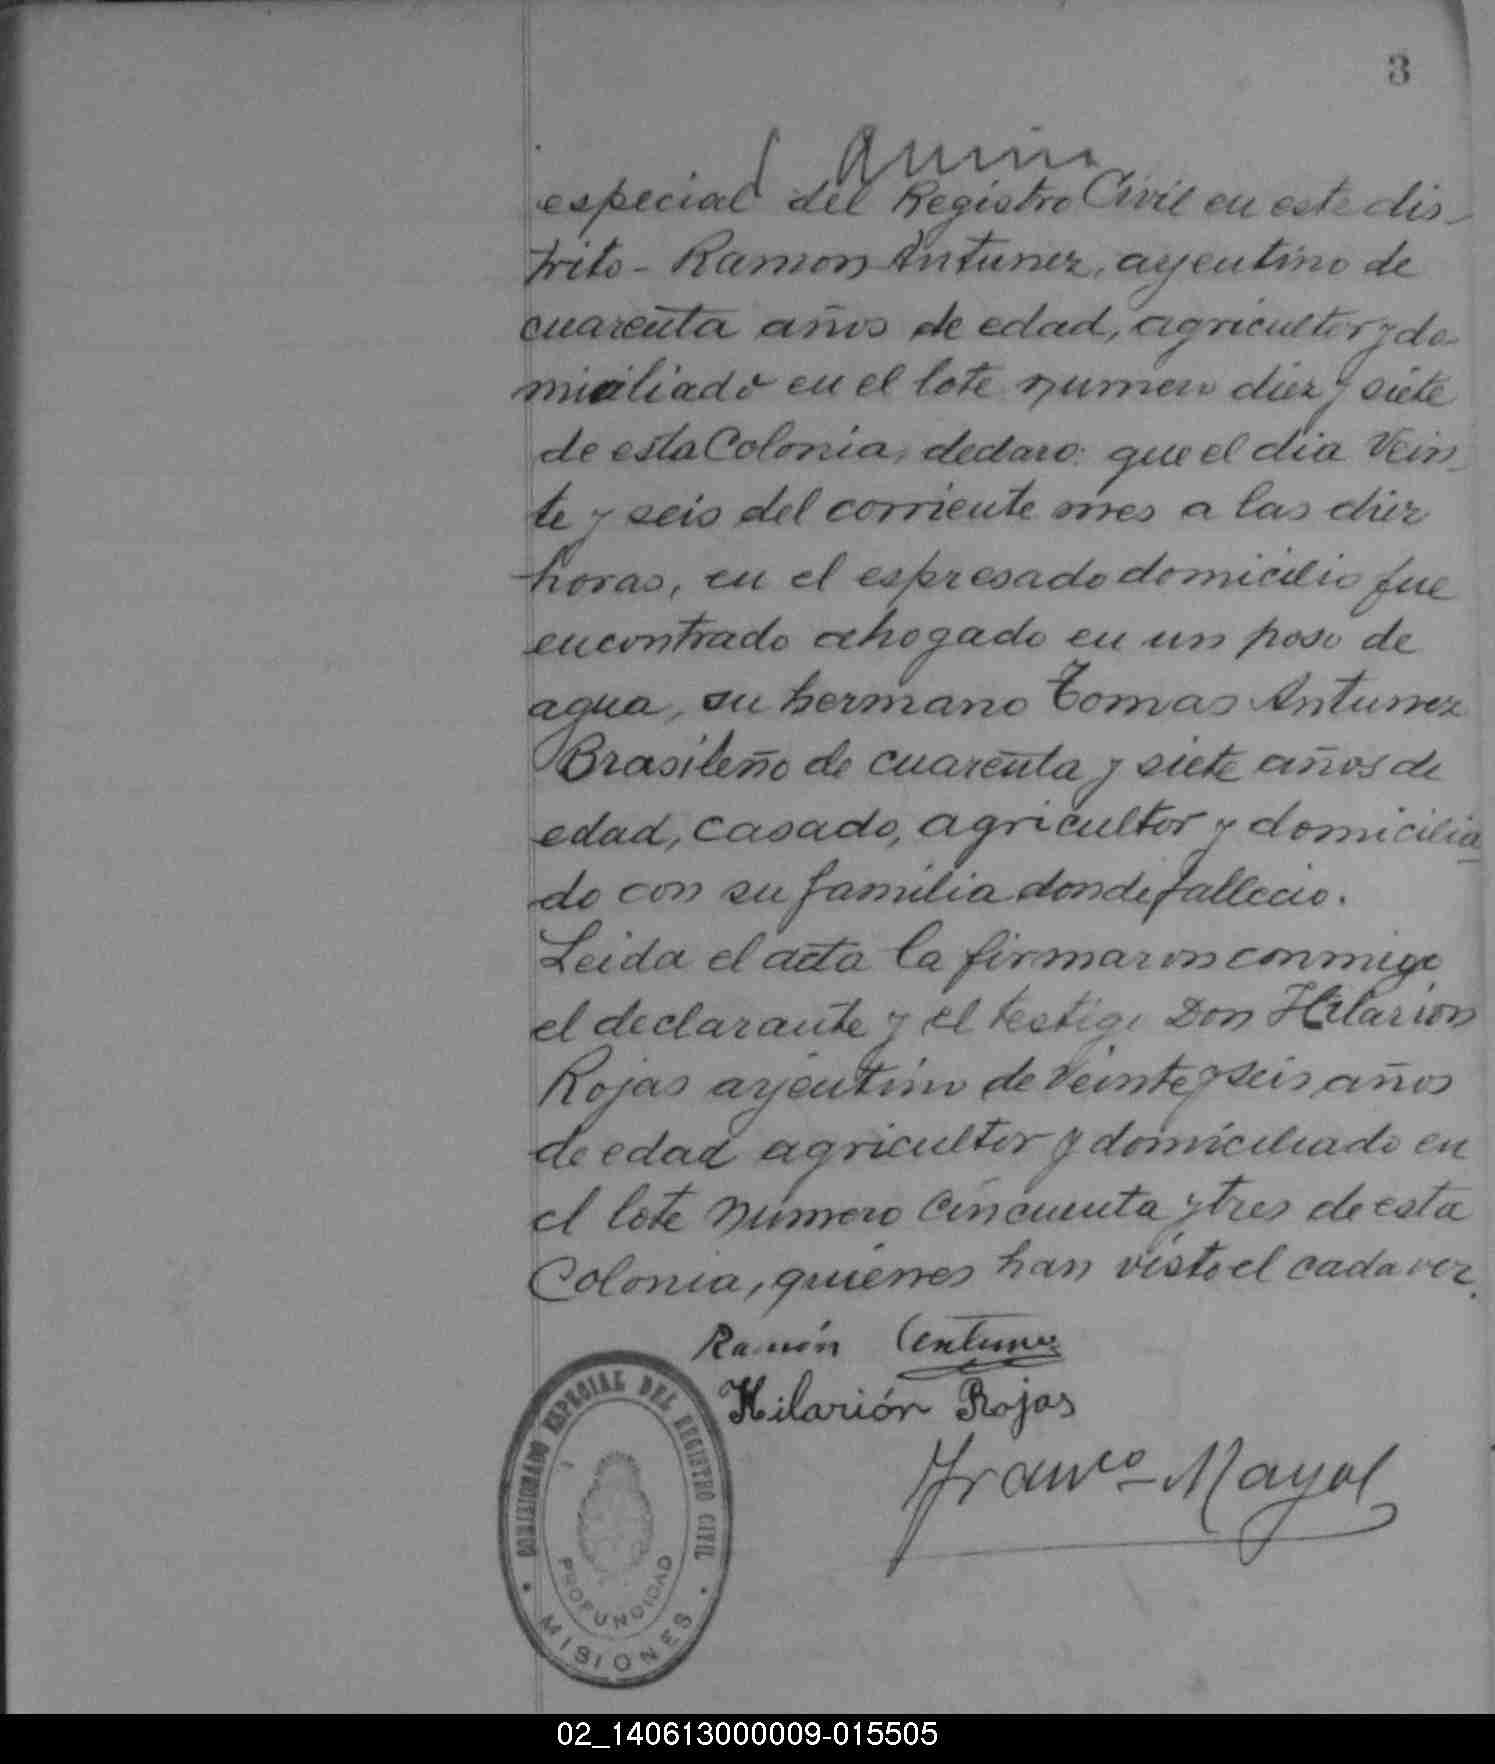 3
especial del Registro Civil en este dis-
trito - Ramon Antunez, arjentino de
cuarenta años de edad, agricultor y do-
miciliado en el lote numero diez y siete
de esta Colonia, declaro: que el dia Vein-
te y seis del corriente mes a las diez
horas, en el espresado domicilio fue
encontrado ahogado en un poso de
agua, su hermano Tomas Antunez
Brasileño de cuarenta y siete años de
edad, casado, agricultor y domicilia-
do con su familia donde fallecio.
Leida el acta la firmaron conmigo
el declarante y el testigo Don Hilarion
Rojas arjentino de Veinte y seis años
de edad agricultor y domiciliado en
el lote número Cincuenta y tres de esta
Colonia, quienes han visto el cadaver.
Ramón Antunez
Hilarión Rojas
Franco Mayol
COMISIONADO ESPECIAL DEL REGISTRO CIVIL
PROFUNDIDAD
MISIONES
02_140613000009-015505